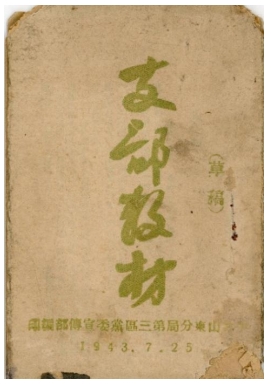 支部教材
（草稿）
山東分局第三區黨委宣傳部編
1943.7.25